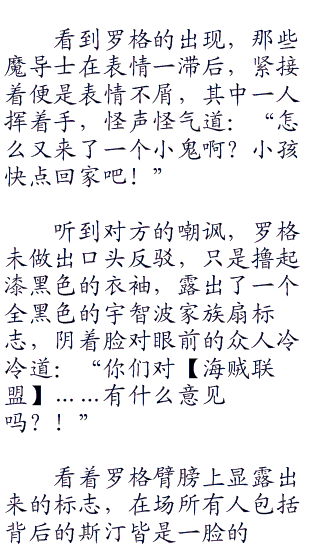 看到罗格的出现，那些
魔导士在表情一滞后，紧接
着便是表情不屑，其中一人
挥着手，怪声怪气道：“怎
么又来了一个小鬼啊？小孩
快点回家吧！”
听到对方的嘲讽，罗格
未做出口头反驳，只是撸起
漆黑色的衣袖，露出了一个
全黑色的宇智波家族扇标
志，阴着脸对眼前的众人冷
冷道：“你们对【海贼联
盟】……有什么意见
吗？！”
看着罗格臂膀上显露出
来的标志，在场所有人包括
背后的斯汀皆是一脸的